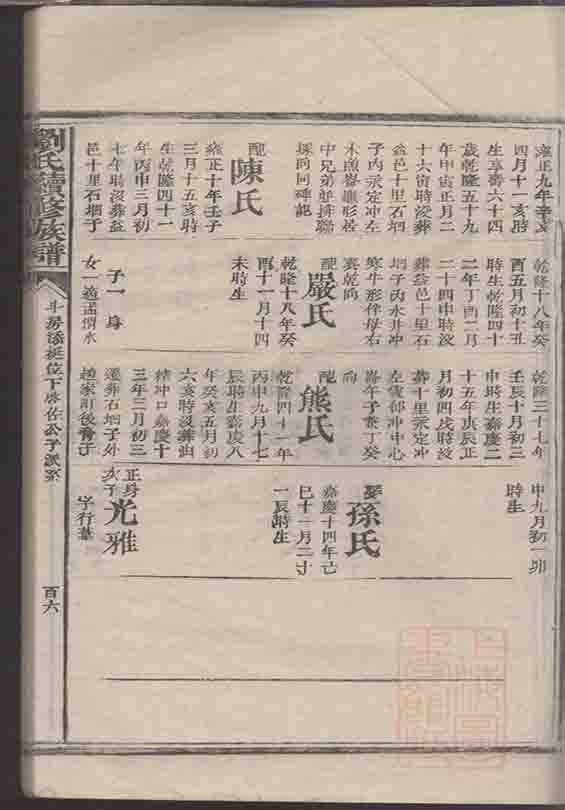 雍正九年辛亥
四月十一亥時
生享壽六十四
歲乾隆五十九
年甲寅正月二
十六酉時歿葬
益邑十里石堌
子丙永定冲左
中兄弟並排聯
塜同向碑記
配陳氏
雍正十年壬子
三月十五亥時
生乾隆四十一
年丙申三月初
七年時歿葬益
邑十里石堌子
乾隆十八年癸
酉五月初十丑
時生乾隆四十
二年丁酉二月
二十四申時歿
葬益邑十里石
堌子丙永井冲
寒牛形
艮乾向
配嚴氏
乾隆十八年癸
酉十一月十四
未時生
子一 身
女 適孟
乾隆三十七年
壬辰十月初三
申時生嘉慶二
十五年庚辰正
月初四戌時歿
葬十里永定冲
冲中心
午子兼丁癸
向
配熊氏
乾隆四十一年
丙申九月十七
辰時生嘉慶八
年癸亥五月初
六亥時歿葬
冲口嘉慶十
三年三月初三
遷葬石堌子外
申九月初一卯
時生
孫氏
嘉慶十四年己
巳十一月二十
一辰時生
正身
次子
光雅
字行基
劉氏續修族譜
斗房添梃位下啟佐公子派系
百六